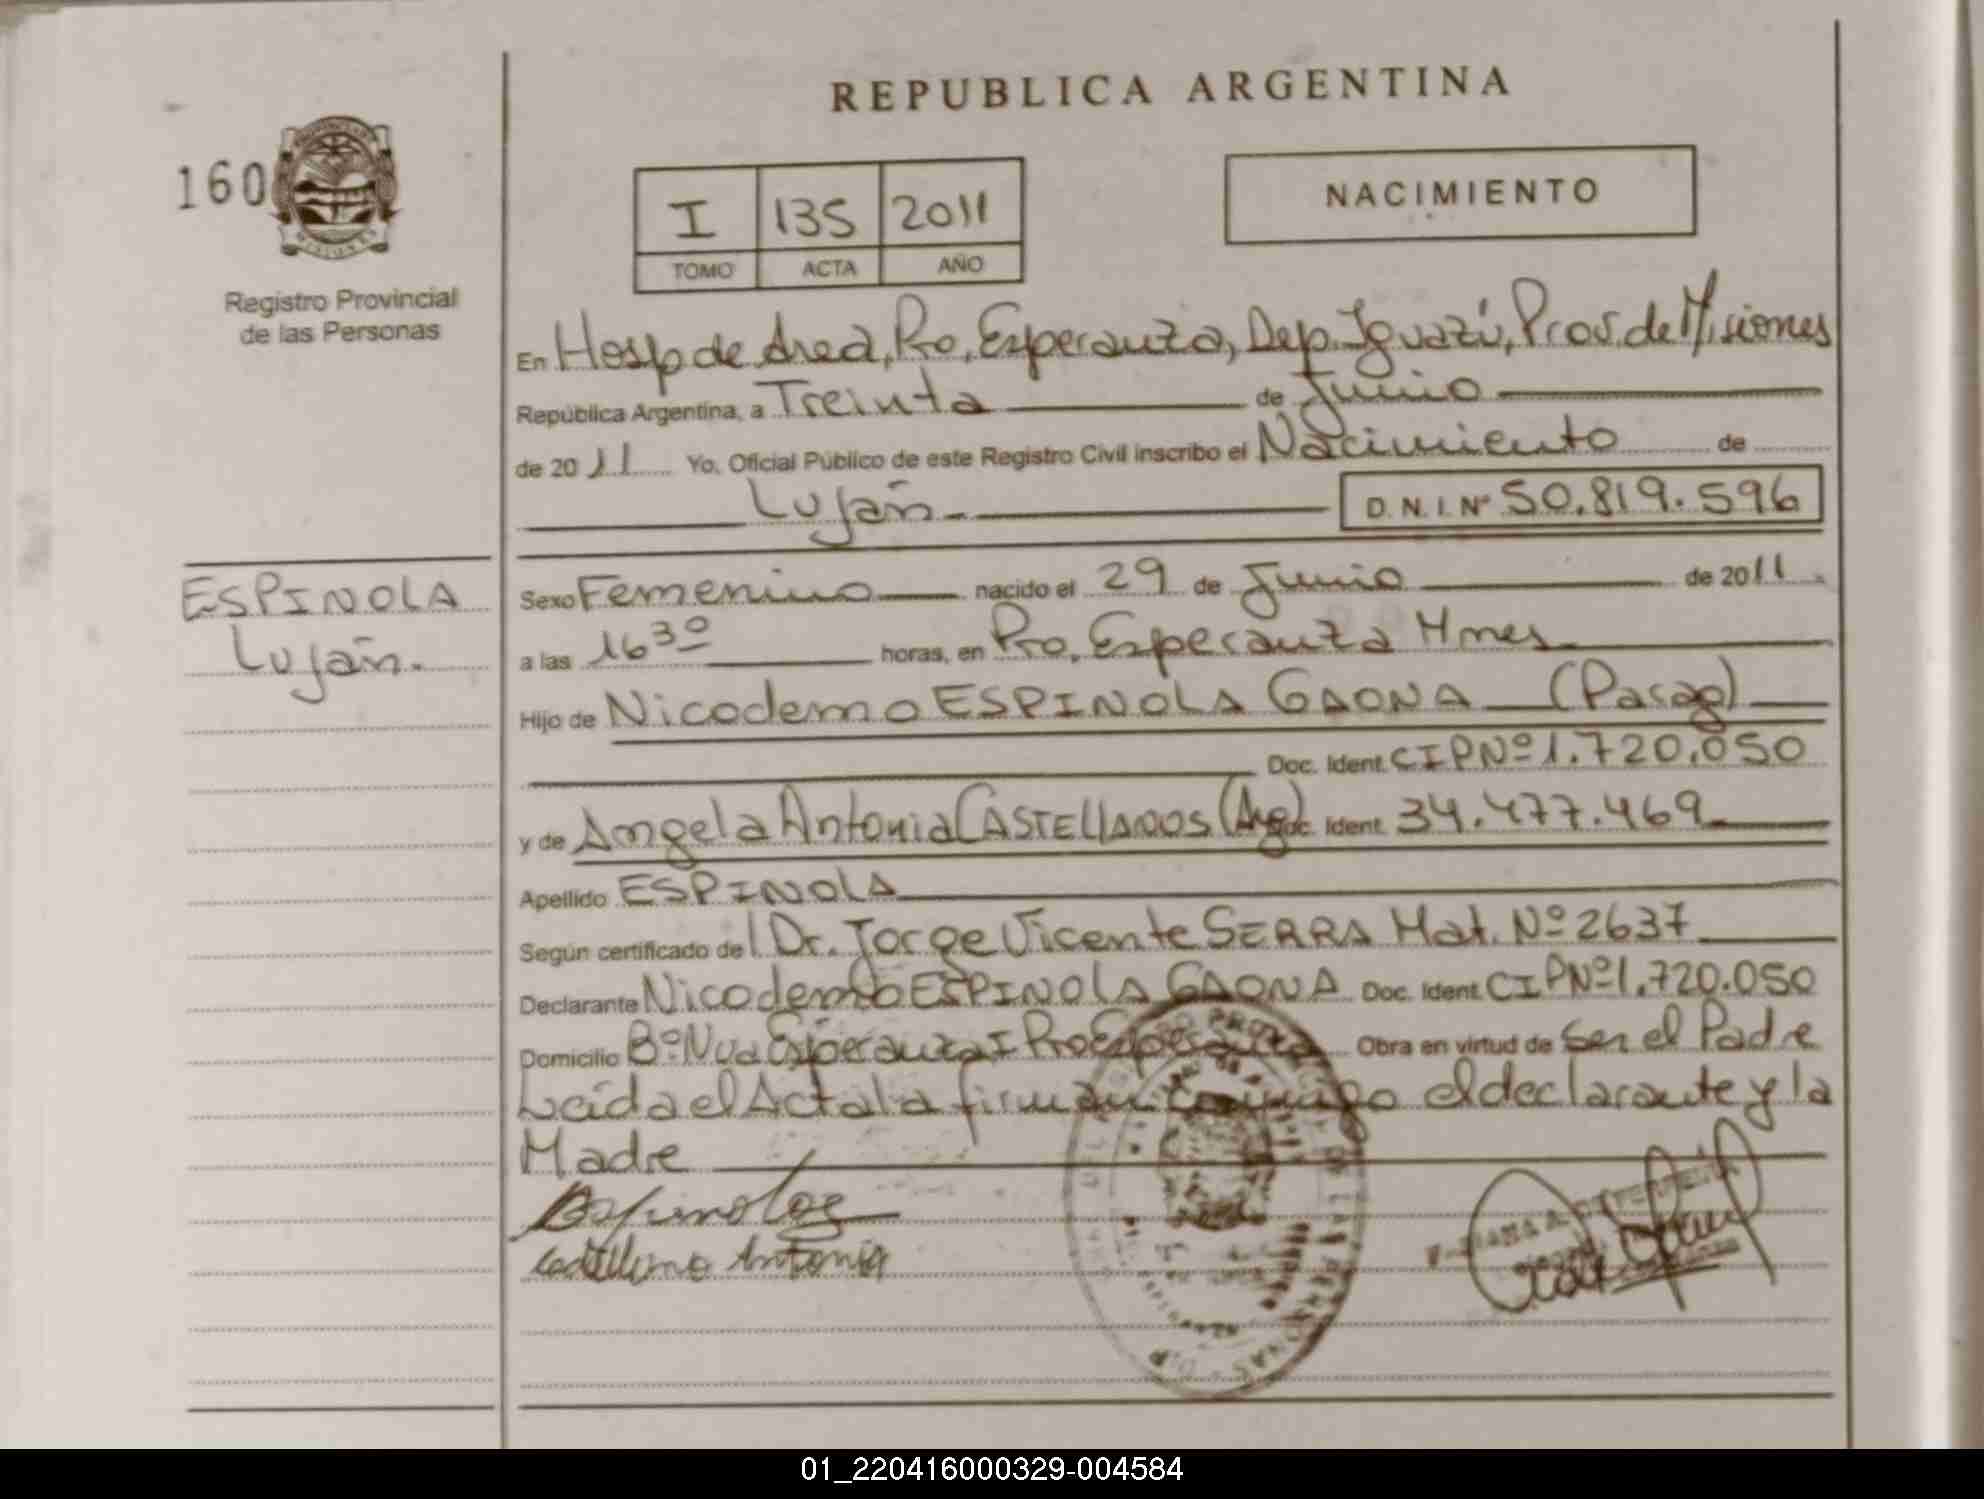 REPUBLICA ARGENTINA
160
MISIONES
Registro Provincial
de las Personas
I 135 2011
TOMO ACTA AÑO
NACIMIENTO
En Hosp de Area, Pto. Esperanza, Dep. Iguazú, Prov. de Misiones
República Argentina, a Treinta de Junio
de 2011 Yo, Oficial Público de este Registro Civil inscribo el Nacimiento de
Luján D.N.I. Nº 50.819.596
ESPINOLA
Luján.
Sexo Femenino nacido el 29 de Junio de 2011
a las 16³⁰ horas, en Pto. Esperanza Mnes
Hijo de Nicodemo ESPINOLA GAONA (Parag)
Doc. Ident. CIPNº 1.720.050
y de Angela Antonia CASTELLANOS (Arg) Doc. Ident. 34.477.469
Apellido ESPINOLA
Según certificado del Dr. Jorge Vicente SERRA Mat. Nº 2637
Declarante Nicodemo ESPINOLA GAONA Doc. Ident. CIPNº 1.720.050
Domicilio Bº Nva Esperanza I Pto Esperanza Obra en virtud de ser el Padre
Leída el Acta la firman conmigo el declarante y la
Madre
Antonia
01_220416000329-004584